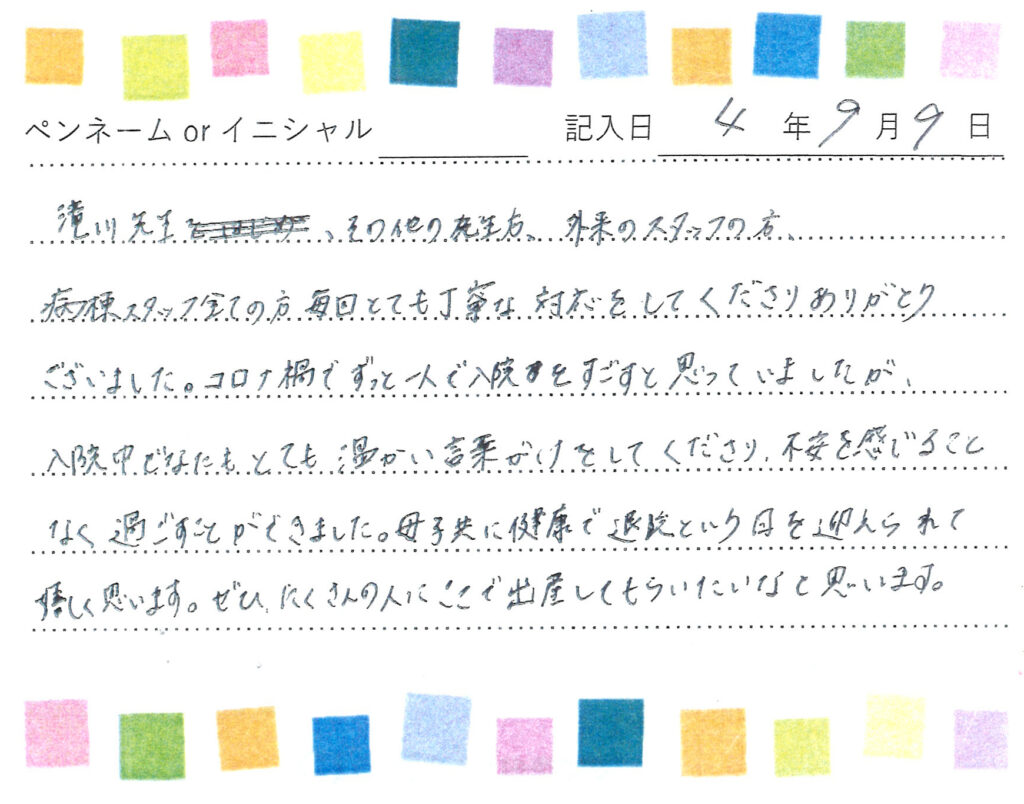 ペンネーム or イニシャル 記入日 4 年 9 月 9 日
滝川先生、その他の先生方、外来のスタッフの方、
病棟スタッフ全ての方毎回とても丁寧な対応をしてくださりありがとう
ございました。コロナ禍でずっと一人で入院をすごすと思っていましたが、
入院中どなたもとても温かい言葉がけをしてくださり、不安を感じること
なく過ごすことができました。母子共に健康で退院という日を迎えられて
嬉しく思います。ぜひ、たくさんの人にここで出産してもらいたいなと思います。